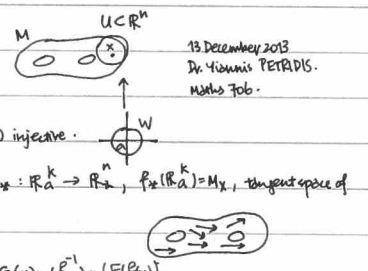 U⊂ℝⁿ
M
13 December 2013
Dr. Yiannis PETRIDIS.
Maths 706.
W
) injective.
* : ℝₐᵏ → ℝₓⁿ, f_*(ℝₐᵏ)=Mₓ, tangent space of